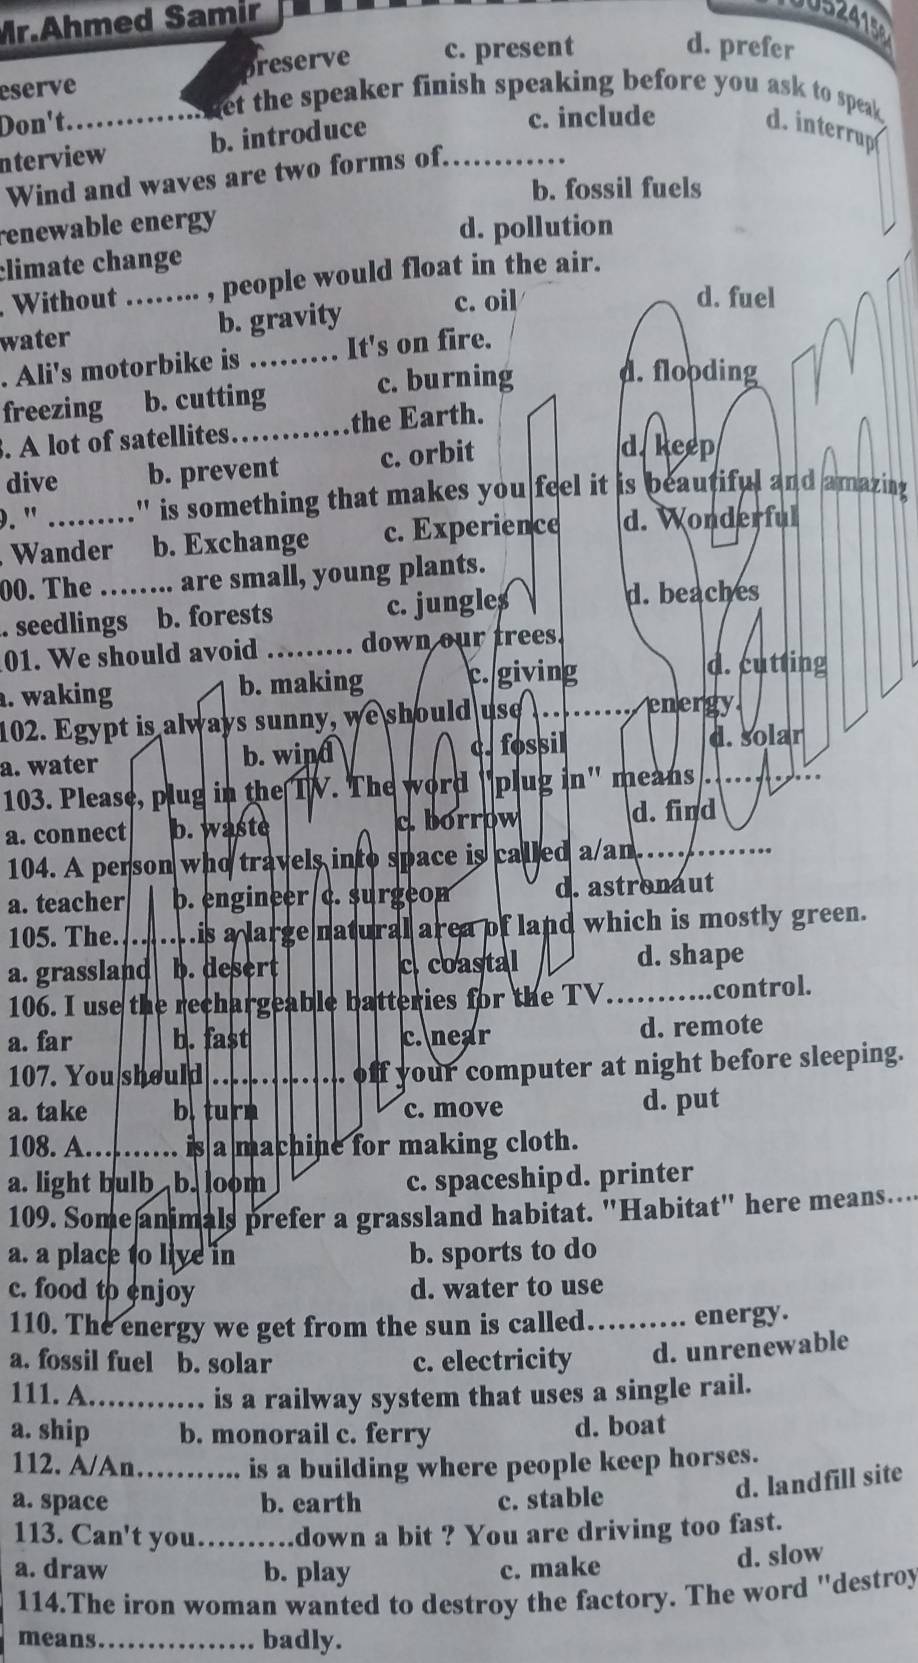 Mr.Ahmed Samir
eserve preserve c. present d. prefer
Don't............. Let the speaker finish speaking before you ask to speak.
nterview b. introduce c. include d. interrupt
Wind and waves are two forms of............
renewable energy b. fossil fuels
climate change d. pollution
. Without ........ , people would float in the air.
water b. gravity c. oil d. fuel
. Ali's motorbike is ......... It's on fire.
freezing b. cutting c. burning d. flooding
. A lot of satellites............the Earth.
dive b. prevent c. orbit d. keep
. " ........." is something that makes you feel it is beautiful and amazing
. Wander b. Exchange c. Experience d. Wonderful
00. The ........ are small, young plants.
. seedlings b. forests c. jungles d. beaches
101. We should avoid ......... down our trees.
a. waking b. making c. giving d. cutting
102. Egypt is always sunny, we should use ........... energy.
a. water b. wind c. fossil d. solar
103. Please, plug in the TV. The word "plug in" means ............
a. connect b. waste c. borrow d. find
104. A person who travels into space is called a/an..............
a. teacher b. engineer c. surgeon d. astronaut
105. The.........is a large natural area of land which is mostly green.
a. grassland b. desert c. coastal d. shape
106. I use the rechargeable batteries for the TV...........control.
a. far b. fast c. near d. remote
107. You should .............. off your computer at night before sleeping.
a. take b. turn c. move d. put
108. A.......... is a machine for making cloth.
a. light bulb b. loom c. spaceship d. printer
109. Some animals prefer a grassland habitat. "Habitat" here means....
a. a place to live in b. sports to do
c. food to enjoy d. water to use
110. The energy we get from the sun is called.......... energy.
a. fossil fuel b. solar c. electricity d. unrenewable
111. A............ is a railway system that uses a single rail.
a. ship b. monorail c. ferry d. boat
112. A/An........... is a building where people keep horses.
a. space b. earth c. stable d. landfill site
113. Can't you..........down a bit ? You are driving too fast.
a. draw b. play c. make d. slow
114.The iron woman wanted to destroy the factory. The word "destroy
means................ badly.